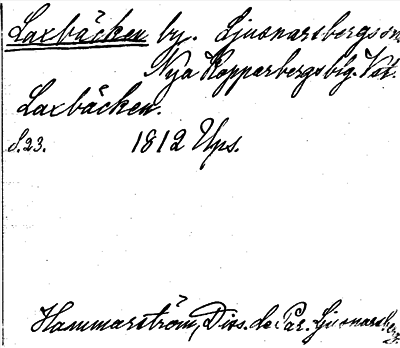 Laxbäcken by. Ljusnarsbergs sn
Nya Kopparbergs blg. Vst.
Laxbäcken.
S. 23. 1812 Ups.
Hammarström, Diss. de Par. Ljusnarsberg.